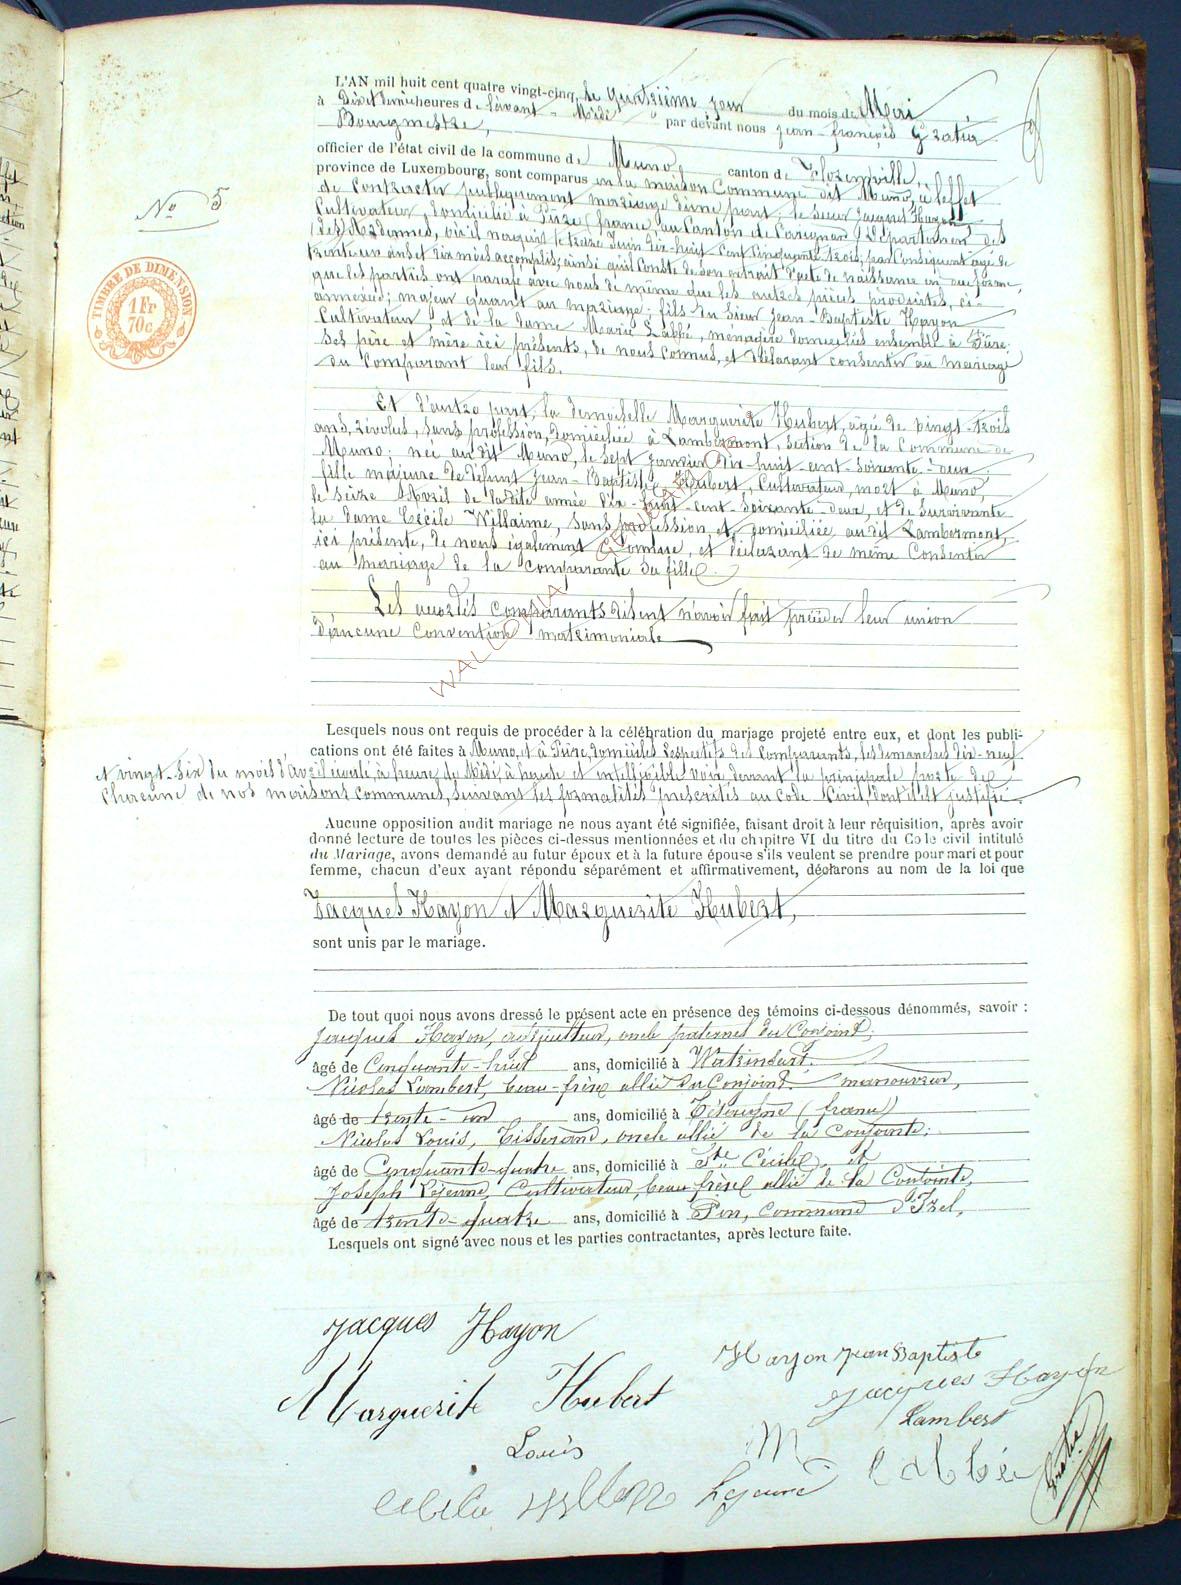 L'AN mil huit cent quatre vingt-cinq, le quatrième jour du mois de Mai
à Dix et demie heures de l'avant-Midi par devant nous Jean-françois Gratia
Bourgmestre,
officier de l'état civil de la commune de Muno, canton de Florenville,
province de Luxembourg, sont comparus en la maison Commune dit Muno, à l'effet
de Contracter publiquement mariage d'une part, le sieur Jacques Hayon
Cultivateur, domicilié à Pure (france) au Canton de Carignan (département des
(des) Ardennes, où il naquit le treize Juin dix-huit-Cent Cinquante-trois; par Conséquent âgé de
trente-un ans et dix mois accomplis; ainsi qu'il Conste de son extrait d'acte de naissance en due forme,
que les parties ont parafé avec nous de même que les autres pièces produites, ci-
annexées; majeur quant au mariage; fils du Sieur Jean-Baptiste Hayon
Cultivateur, et de la dame Marie Labbé, ménagère domiciliés ensemble à Pure;
Ses père et mère ici présents, de nous Connus, et déclarant consentir au mariage
du Comparant leur fils.
Et d'autre part, la demoiselle Marguerite Hubert, âgée de vingt-trois
ans, révolus, sans profession, domiciliée à Lambermont, section de la Commune de
Muno; née audit Muno, le sept Janvier dix-huit-cent-soixante-deux;
fille majeure de défunt Jean-Baptiste Hubert, Cultivateur, mort à Muno,
le seize Avril de ladite année dix-huit-cent-soixante-deux, et de survivante
la dame Cécile Willaime, sans profession, et domiciliée audit Lambermont,
ici présente, de nous également Connue, et déclarant de même Consentir
au mariage de la Comparante sa fille.
Les susdits comparants disent n'avoir fait précéder leur union
d'aucune Convention matrimoniale
Lesquels nous ont requis de procéder à la célébration du mariage projeté entre eux, et dont les publi-
cations ont été faites à Muno, et à Pure, domiciles respectifs des Comparants, les dimanches dix-neuf
et vingt-six du mois d'avril écoulé, à heure de Midi, à haute et intelligible voix, devant la principale porte de
Chacune de nos maisons communes, suivant les formalités prescrites au Code Civil, dont il est justifié.
Aucune opposition audit mariage ne nous ayant été signifiée, faisant droit à leur réquisition, après avoir
donné lecture de toutes les pièces ci-dessus mentionnées et du chapitre VI du titre du Code civil intitulé
du Mariage, avons demandé au futur époux et à la future épouse s'ils veulent se prendre pour mari et pour
femme, chacun d'eux ayant répondu séparément et affirmativement, déclarons au nom de la loi que
Jacques Hayon et Marguerite Hubert,
sont unis par le mariage.
De tout quoi nous avons dressé le présent acte en présence des témoins ci-dessous dénommés, savoir :
Jacques Hayon, cultivateur, oncle paternel du Conjoint,
âgé de Cinquante-huit ans, domicilié à Watrinsart.
Nicolas Lambert, beau-frère allié du Conjoint manouvrier,
âgé de trente-un ans, domicilié à (france)
Nicolas Louis, Tisserand, oncle allié de la Conjointe,
âgé de Cinquante-quatre ans, domicilié à Ste Cécile, et
Joseph Lejeune, Cultivateur, beau frère allié de la Conjointe,
âgé de trente-quatre ans, domicilié à Pin, Commune d'Izel,
Lesquels ont signé avec nous et les parties contractantes, après lecture faite.
No 5
TIMBRE DE DIMENSION
1 Fr
70c
WALLONIA GENEGAPHE
Jacques Hayon
Hayon Jean Baptiste
Jacques Hayon
Marguerite Hubert
Lambert
Louis
M. Labbé
Lejeune
Gratia